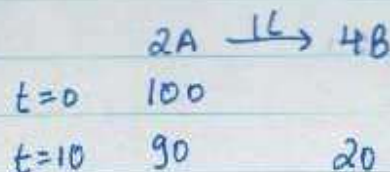 2A k→ 4B
t=0 100
t=10 90 20